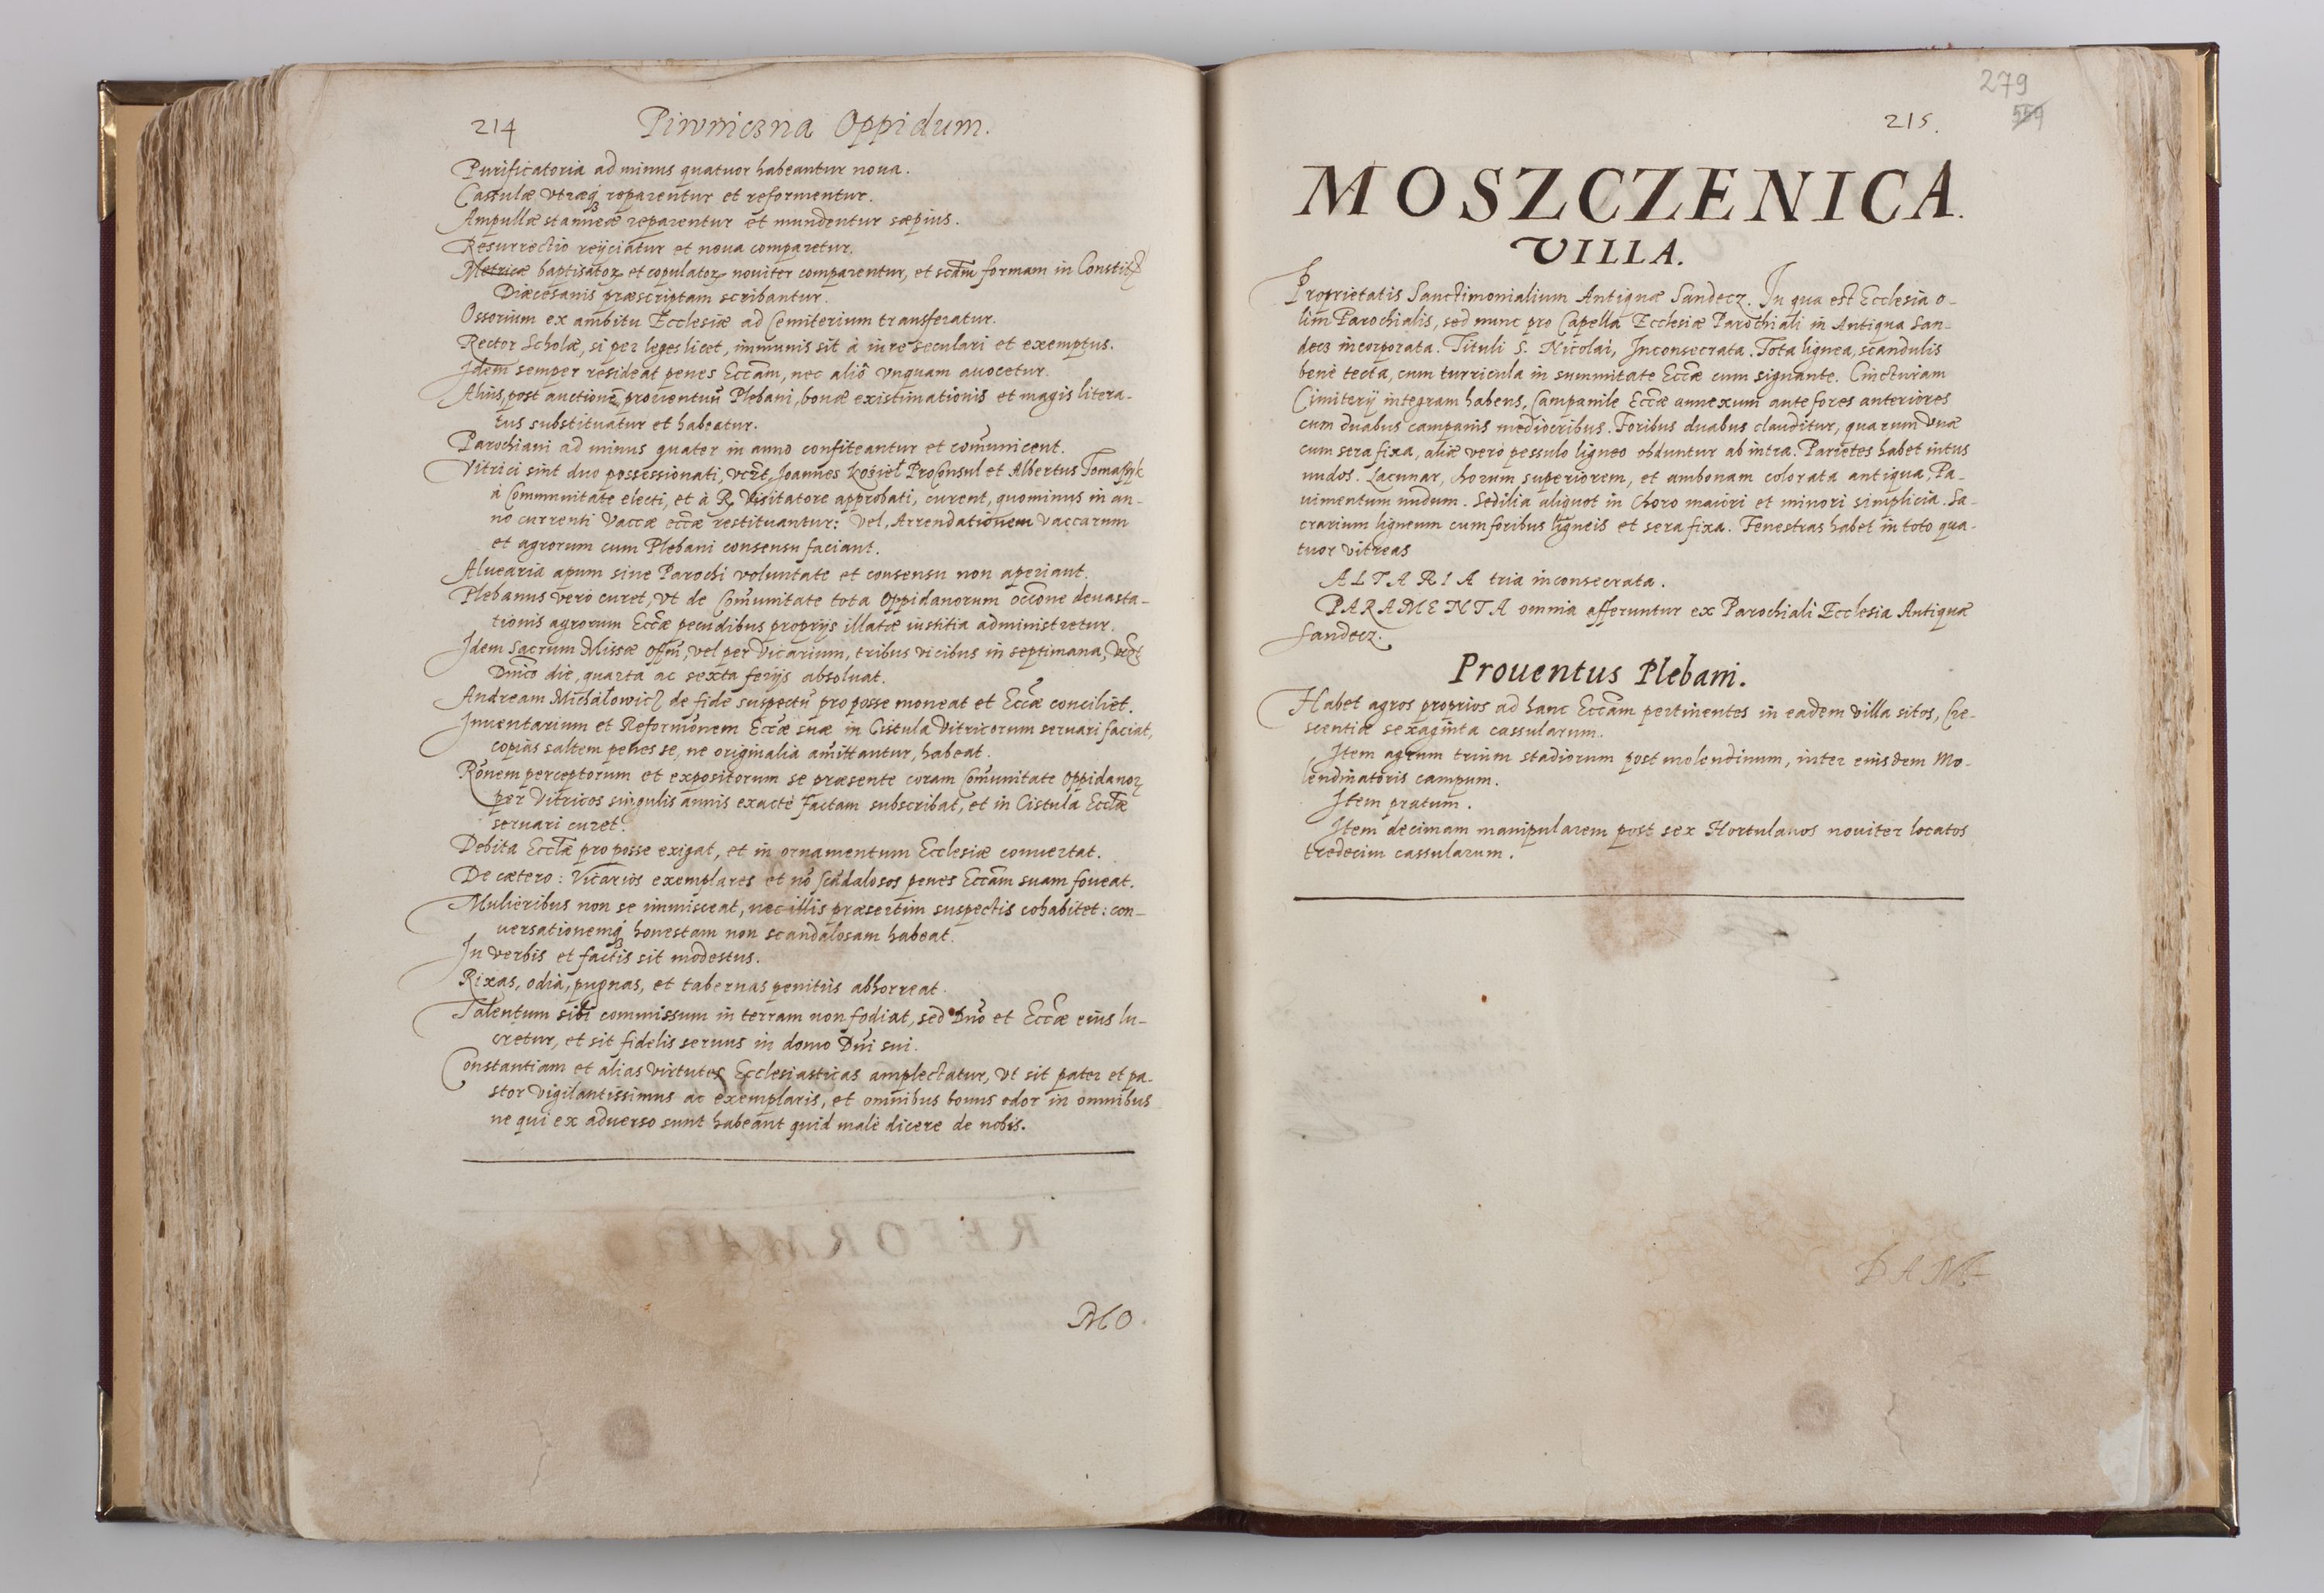 214 Piwniczna Oppidum.
Purificatoria ad minus quatuor habeantur noua.
Casulæ vtræq₃ reparentur et reformentur.
Ampullæ stanneæ reparentur et mundentur sæpius.
Resurrectio reijciatur et noua comparetur.
Metricæ baptisatoꝝ et copulatoꝝ nouiter comparentur, et scdm formam in Constit
Diæcesanis præscriptam scribantur.
Ossorium ex ambitu Ecclesiæ ad Cemiterium transferatur.
Rector Scholæ, si per leges licet, immunis sit à iure seculari et exemptus.
Idem semper resideat penes Eccam, nec aliô vnquam auocetur.
Alius, post auctionē prouentuū Plebani, bonæ existimationis et magis litera-
tus substituatur et habeatur.
Parochiani ad minus quater in anno confiteantur et comunicent.
Vitrici sint duo possessionati, vcꝫt, Joannes Kozieł ProConsul et Albertus Tomasyk
à Communitate electi, et à R. Visitatore approbati, curent, quominus in an-
no currenti Vaccæ eccæ restituantur: vel, Arrendationem vaccarum
et agrorum cum Plebani consensu faciant.
Aluearia apum sine Parochi voluntate et consensu non aperiant.
Plebanus verò curet, vt de Comunitate tota Oppidanorum occone deuasta-
tionis agrorum Eccæ pecudibus proprijs illatæ iustitia administretur.
Idem Sacrum Missæ offm, vel per Vicarium, tribus vicibus in septimana, vcꝫt
Dnico die, quarta ac sexta ferijs absoluat.
Andream Michałowicz de fide suspectū pro posse moneat et Eccæ conciliet.
Inuentarium et Reformonem Eccæ suæ in Cistula Vitricorum seruari faciat,
copias saltem penes se, ne originalia amittantur, habeat.
Ronem perceptorum et expositorum se præsente coram Comunitate Oppidanoꝝ
per Vitricos singulis annis exactè factam subscribat, et in Cistula Ecclæ
seruari curet.
Debita Ecclæ pro posse exigat, et in ornamentum Ecclesiæ conuertat.
De cætero: Vicarios exemplares et nō scādalosos penes Eccam suam foueat.
Mulieribus non se immisceat, nec illis præsertim suspectis cohabitet: con-
uersationemq₃ honestam non scandalosam habeat.
In verbis et factis sit modestus.
Rixas, odia, pugnas, et tabernas penitùs abhorreat.
Talentum sibi commissum in terram non fodiat, sed Dno et Eccæ eius lu-
cretur, et sit fidelis seruus in domo Dni sui.
Constantiam et alias virtutes Ecclesiasticas amplectatur, vt sit pater et pa-
stor vigilantissimus ac exemplaris, et omnibus bonus odor in omnibus
ne qui ex aduerso sunt habeant quid malè dicere de nobis.
MO.
279
559
215.
MOSZCZENICA.
VILLA.
Proprietatis Sanctimonialium Antiquæ Sandecz. In qua est Ecclesia o-
lim Parochialis, sed nunc pro Capella Ecclesiæ Parochiali in Antiqua San-
decz incorporata. Tituli S. Nicolai, Inconsecrata. Tota lignea, scandulis
benè tecta, cum turricula in summitate Eccæ cum signante. Cincturam
Cimiterij integram habens, Campanile Eccæ annexum ante fores anteriores
cum duabus campanis mediocribus. Foribus duabus clauditur, quarum vnæ
cum sera fixa, aliæ verò pessulo ligneo obduntur ab intra. Parietes habet intus
nudos. Lacunar, chorum superiorem, et ambonam colorata antiqua, Pa-
uimentum nudum. Sedilia aliquot in Choro maiori et minori simplicia. Sa-
crarium ligneum cum foribus ligneis et sera fixa. Fenestras habet in toto qua-
tuor vitreas
ALTARIA tria inconsecrata.
PARAMENTA omnia afferuntur ex Parochiali Ecclesia Antiquæ
Sandecz.
Prouentus Plebani.
Habet agros proprios ad hanc Eccam pertinentes in eadem villa sitos, Cre-
scentiæ sexaginta cassularum.
Item agrum trium stadiorum post molendinum, inter eiusdem Mo-
lendinatoris campum.
Item pratum.
Item decimam manipularem post sex Hortulanos nouiter locatos
tredecim cassularum.